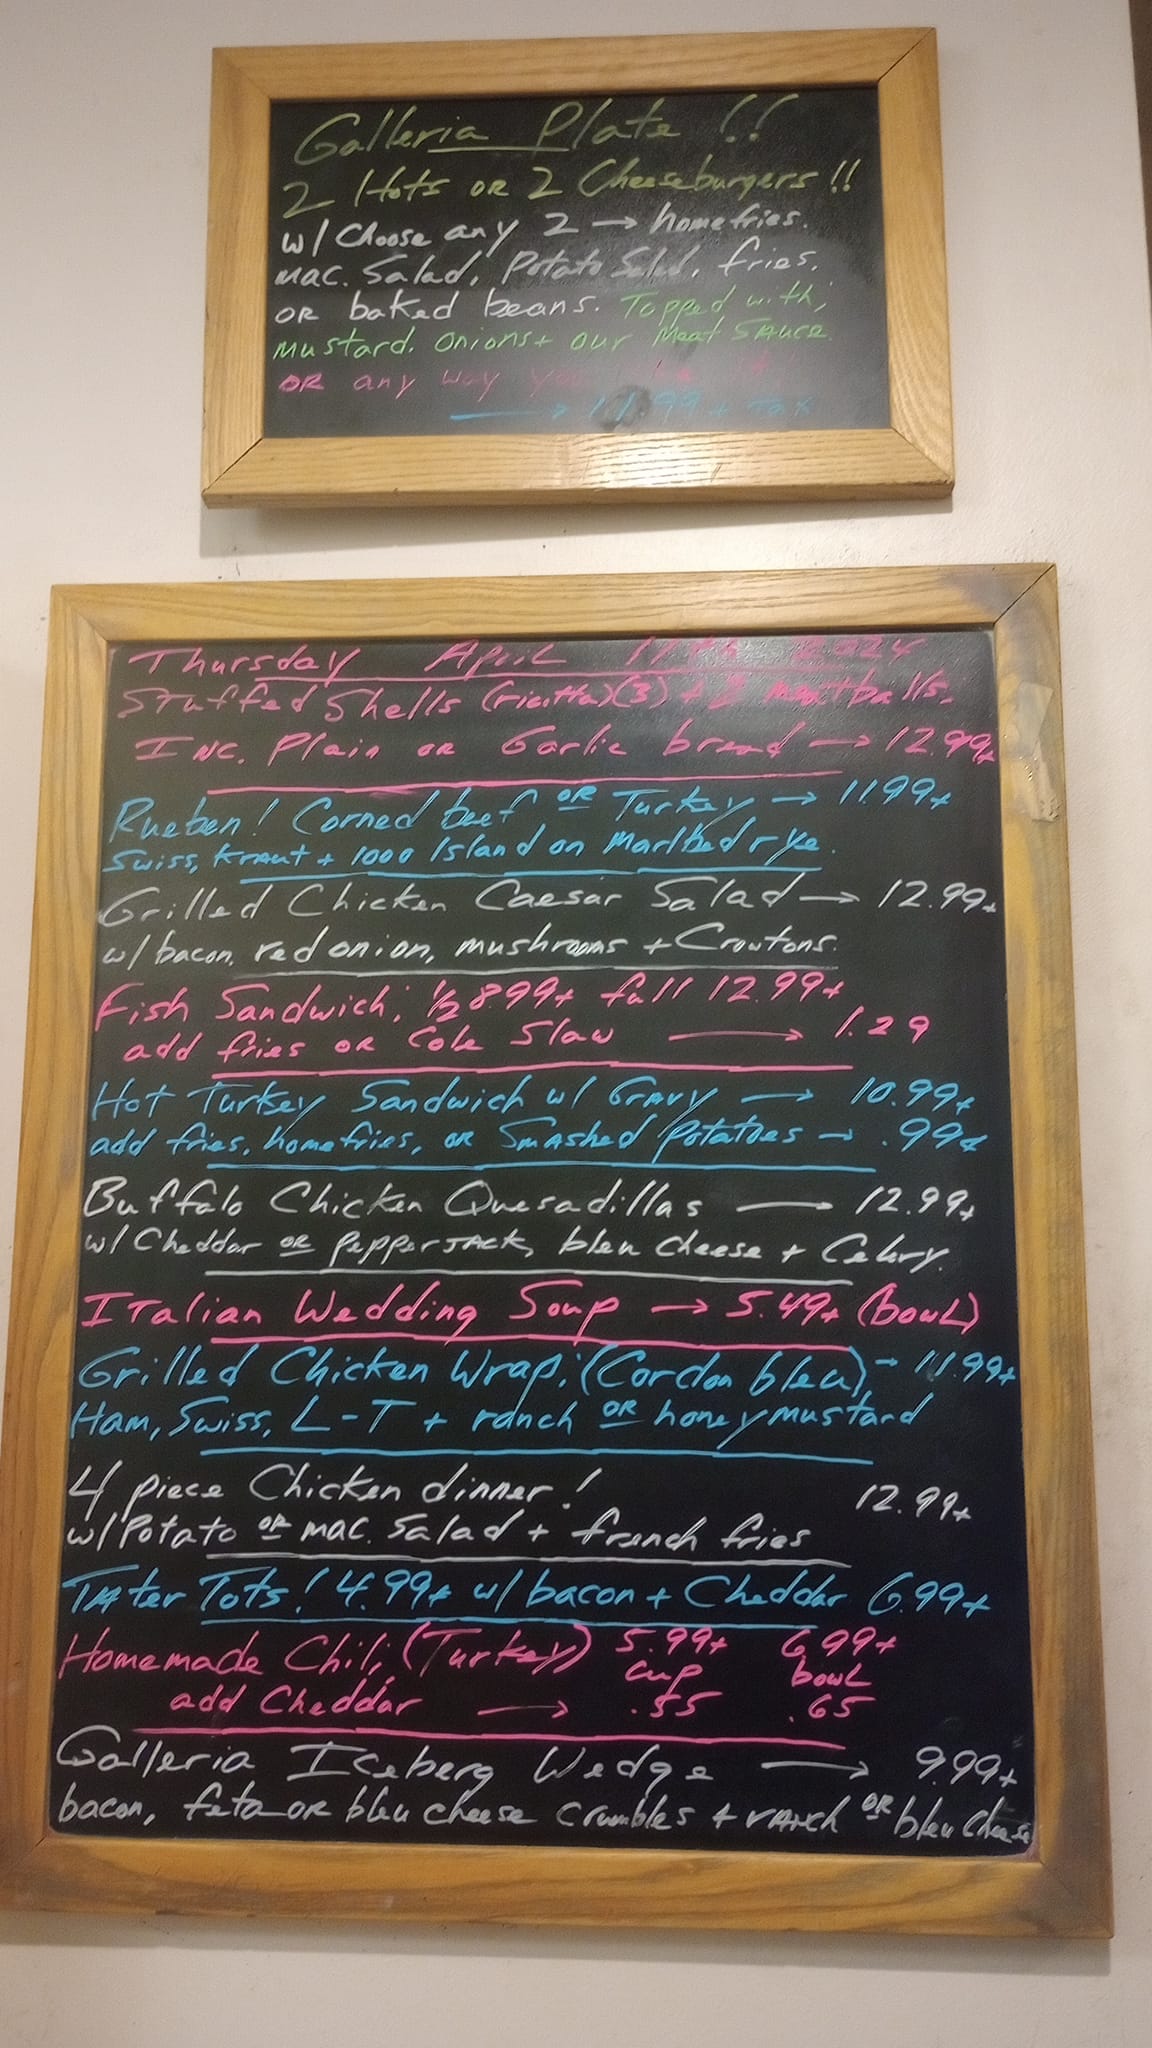 Galleria Plate !!
2 Hots OR 2 Cheeseburgers !!
w/ Choose any 2 → homefries.
mac. Salad, Potato Salad, fries,
OR baked beans. Topped with;
Mustard, Onions + our Meat Sauce
OR any way you
→ 11.99 + tax
Thursday April 11th 2024
Stuffed Shells (ricotta)(3) + 2 meatballs.
INC. Plain OR Garlic bread → 12.99+
Rueben! Corned beef OR Turkey → 11.99+
Swiss, Kraut + 1000 Island on Marlbed rye.
Grilled Chicken Caesar Salad → 12.99+
w/ bacon, red onion, mushrooms + Croutons.
Fish Sandwich; 1/2 8.99+ full 12.99+
add fries OR Cole Slaw → 1.29
Hot Turkey Sandwich w/ Gravy → 10.99+
add fries, homefries, OR Smashed Potatoes → .99+
Buffalo Chicken Quesadillas — 12.99+
w/ Cheddar OR PepperJack, bleu cheese + Celery.
Italian Wedding Soup → 5.49+ (bowl)
Grilled Chicken Wrap; (Cordon bleu) - 11.99+
Ham, Swiss, L-T + ranch OR honeymustard
4 piece Chicken dinner! 12.99+
w/ Potato OR mac. Salad + french fries
Tater Tots! 4.99+ w/ bacon + Cheddar 6.99+
Homemade Chili; (Turkey) 5.99+ 6.99+
cup bowl
add Cheddar → .55 .65
Galleria Iceberg Wedge → 9.99+
bacon, feta OR bleu cheese crumbles + ranch OR bleu cheese